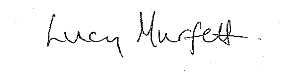 Lucy Murfett